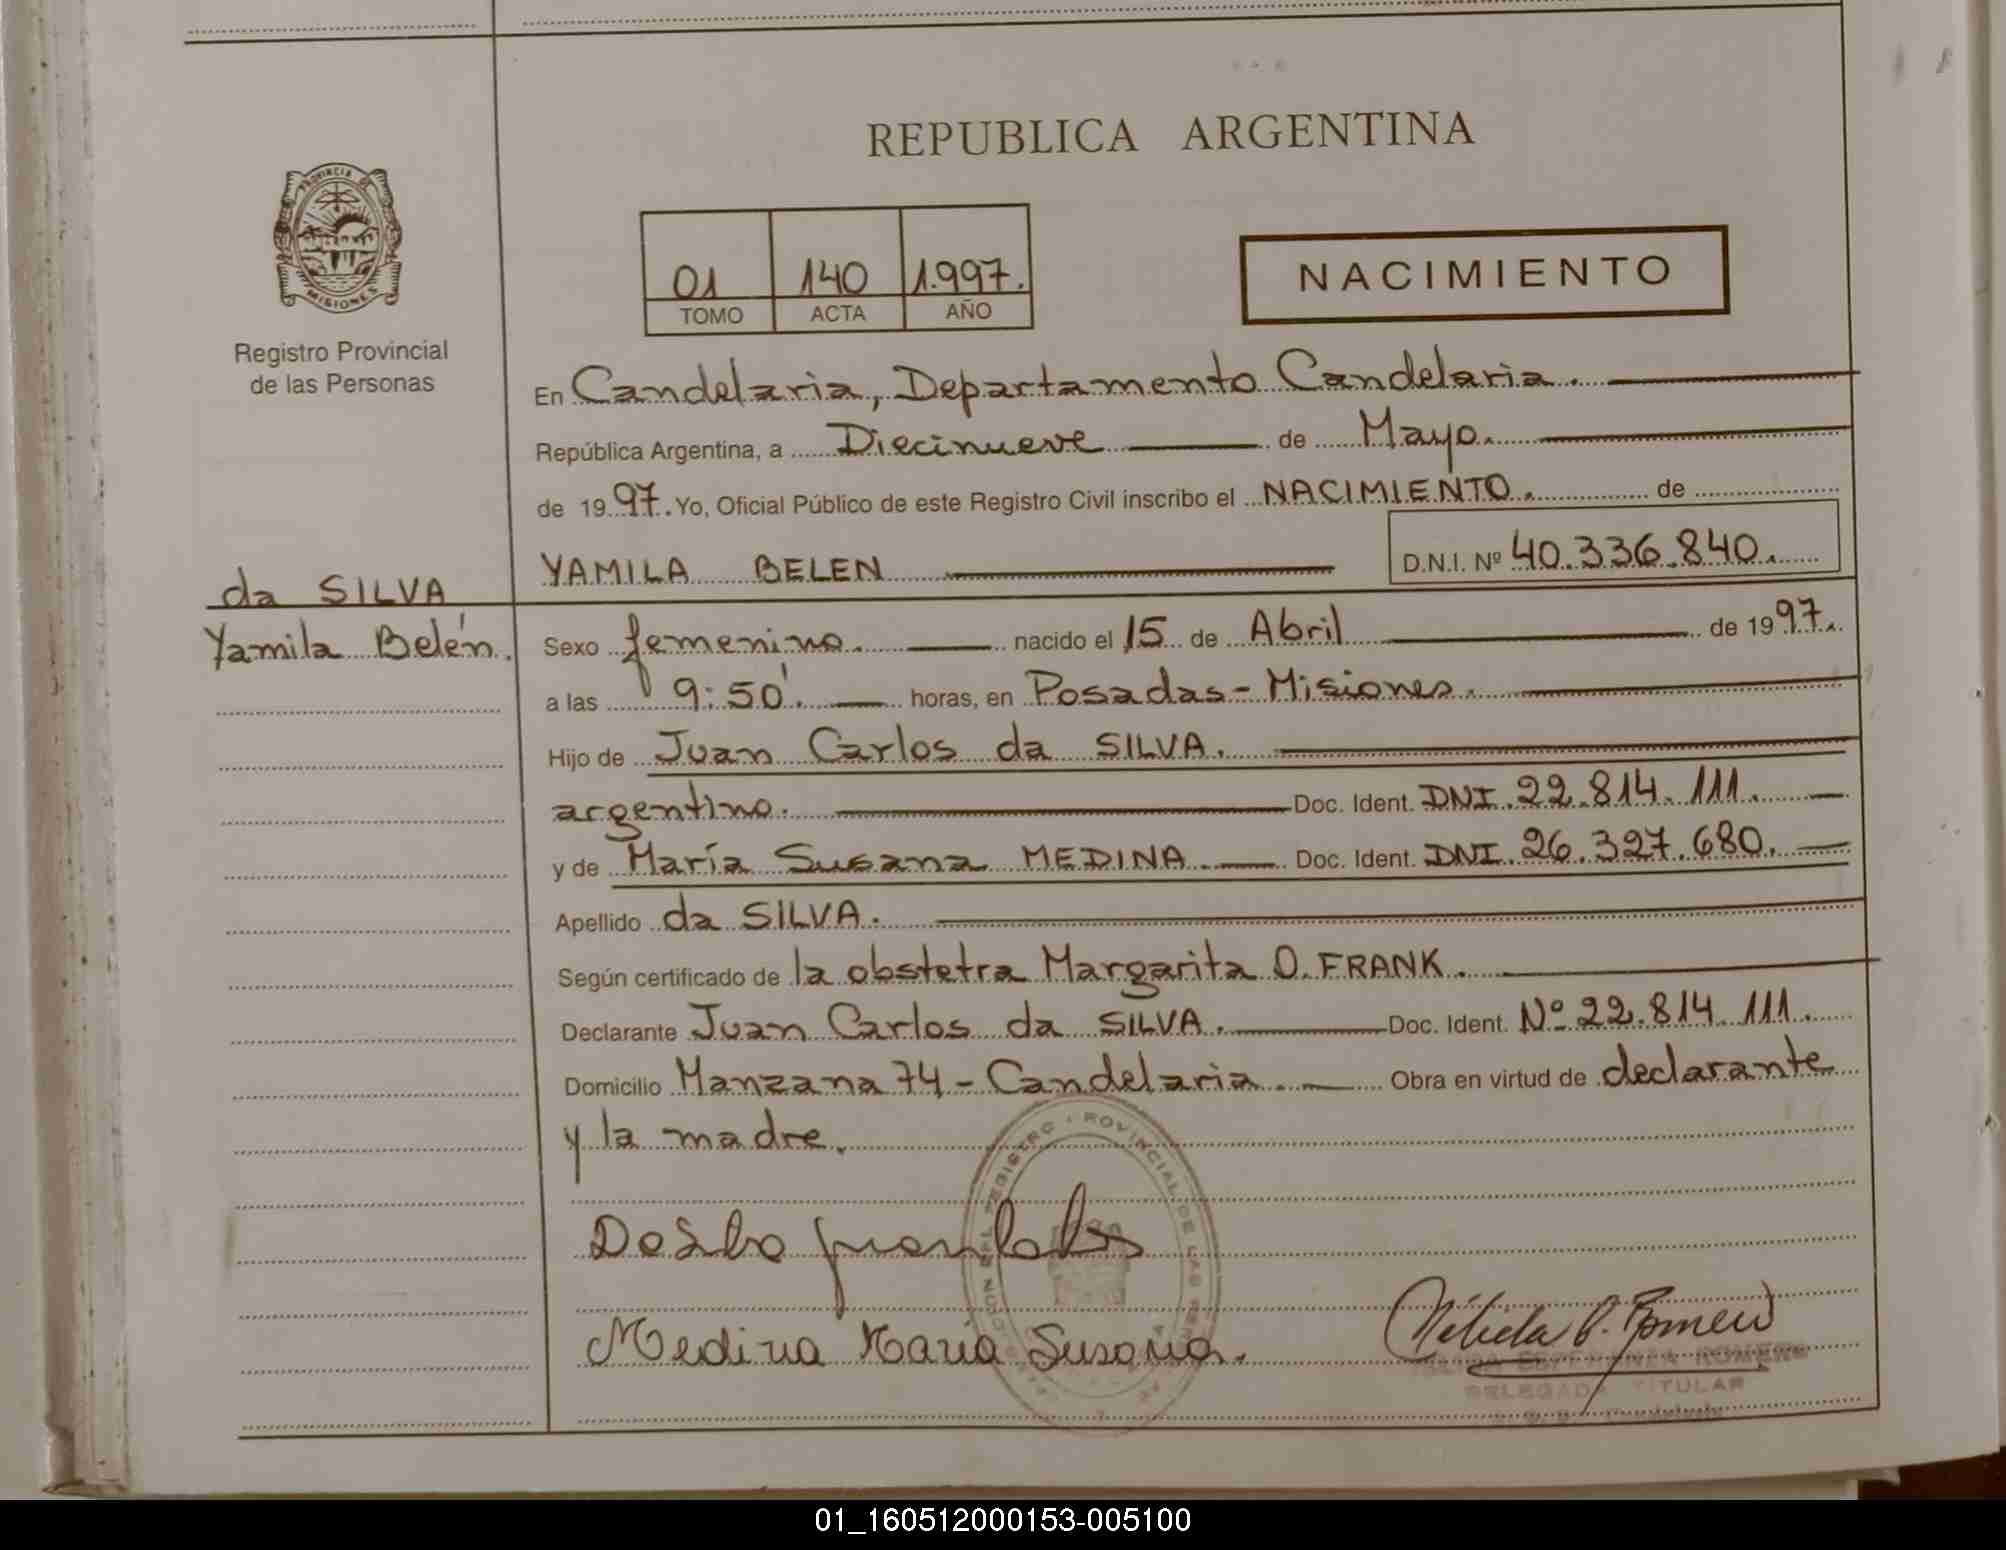 REPUBLICA ARGENTINA
PROVINCIA DE
MISIONES
Registro Provincial
de las Personas
01 140 1.997.
TOMO ACTA AÑO
NACIMIENTO
En Candelaria, Departamento Candelaria.
República Argentina, a Diecinueve de Mayo.
de 1997. Yo, Oficial Público de este Registro Civil inscribo el NACIMIENTO. de
YAMILA BELEN D.N.I. Nº 40.336.840.
da SILVA
Yamila Belén.
Sexo femenino. nacido el 15 de Abril de 1997.
a las 9:50'. horas, en Posadas-Misiones.
Hijo de Juan Carlos da SILVA.
argentino. Doc. Ident. DNI. 22.814.111.
y de María Susana MEDINA. Doc. Ident. DNI. 26.327.680.
Apellido da SILVA.
Según certificado de la obstetra Margarita O. FRANK.
Declarante Juan Carlos da SILVA. Doc. Ident. Nº 22.814.111.
Domicilio Manzana 74 - Candelaria. Obra en virtud de declarante
y la madre.
Medina María Susana.
ESPERANZA ROMERO
DELEGADA TITULAR
01_160512000153-005100